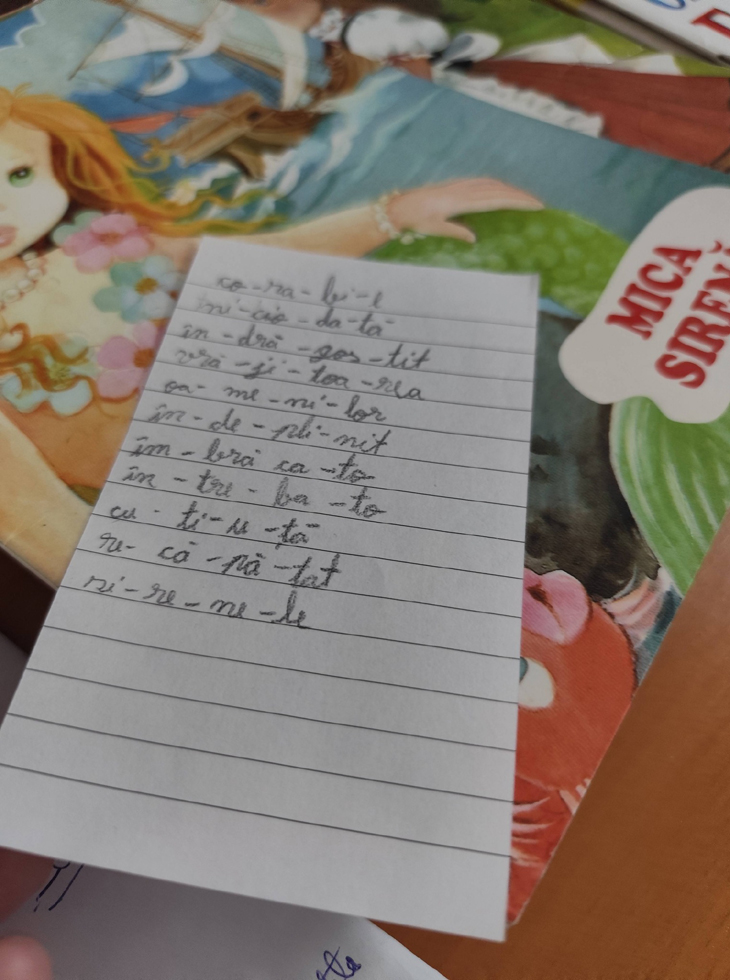 co-ra-bi-e
ni-cio-da-tă
în-dră-gos-tit
vră-ji-toa-rea
oa-me-ni-lor
în-de-pli-nit
îm-bră ca-to
în-tre-ba-to
cu-ti-u-tă
re-că-pă-tat
si-re-ne-le
MICA
SIRENĂ